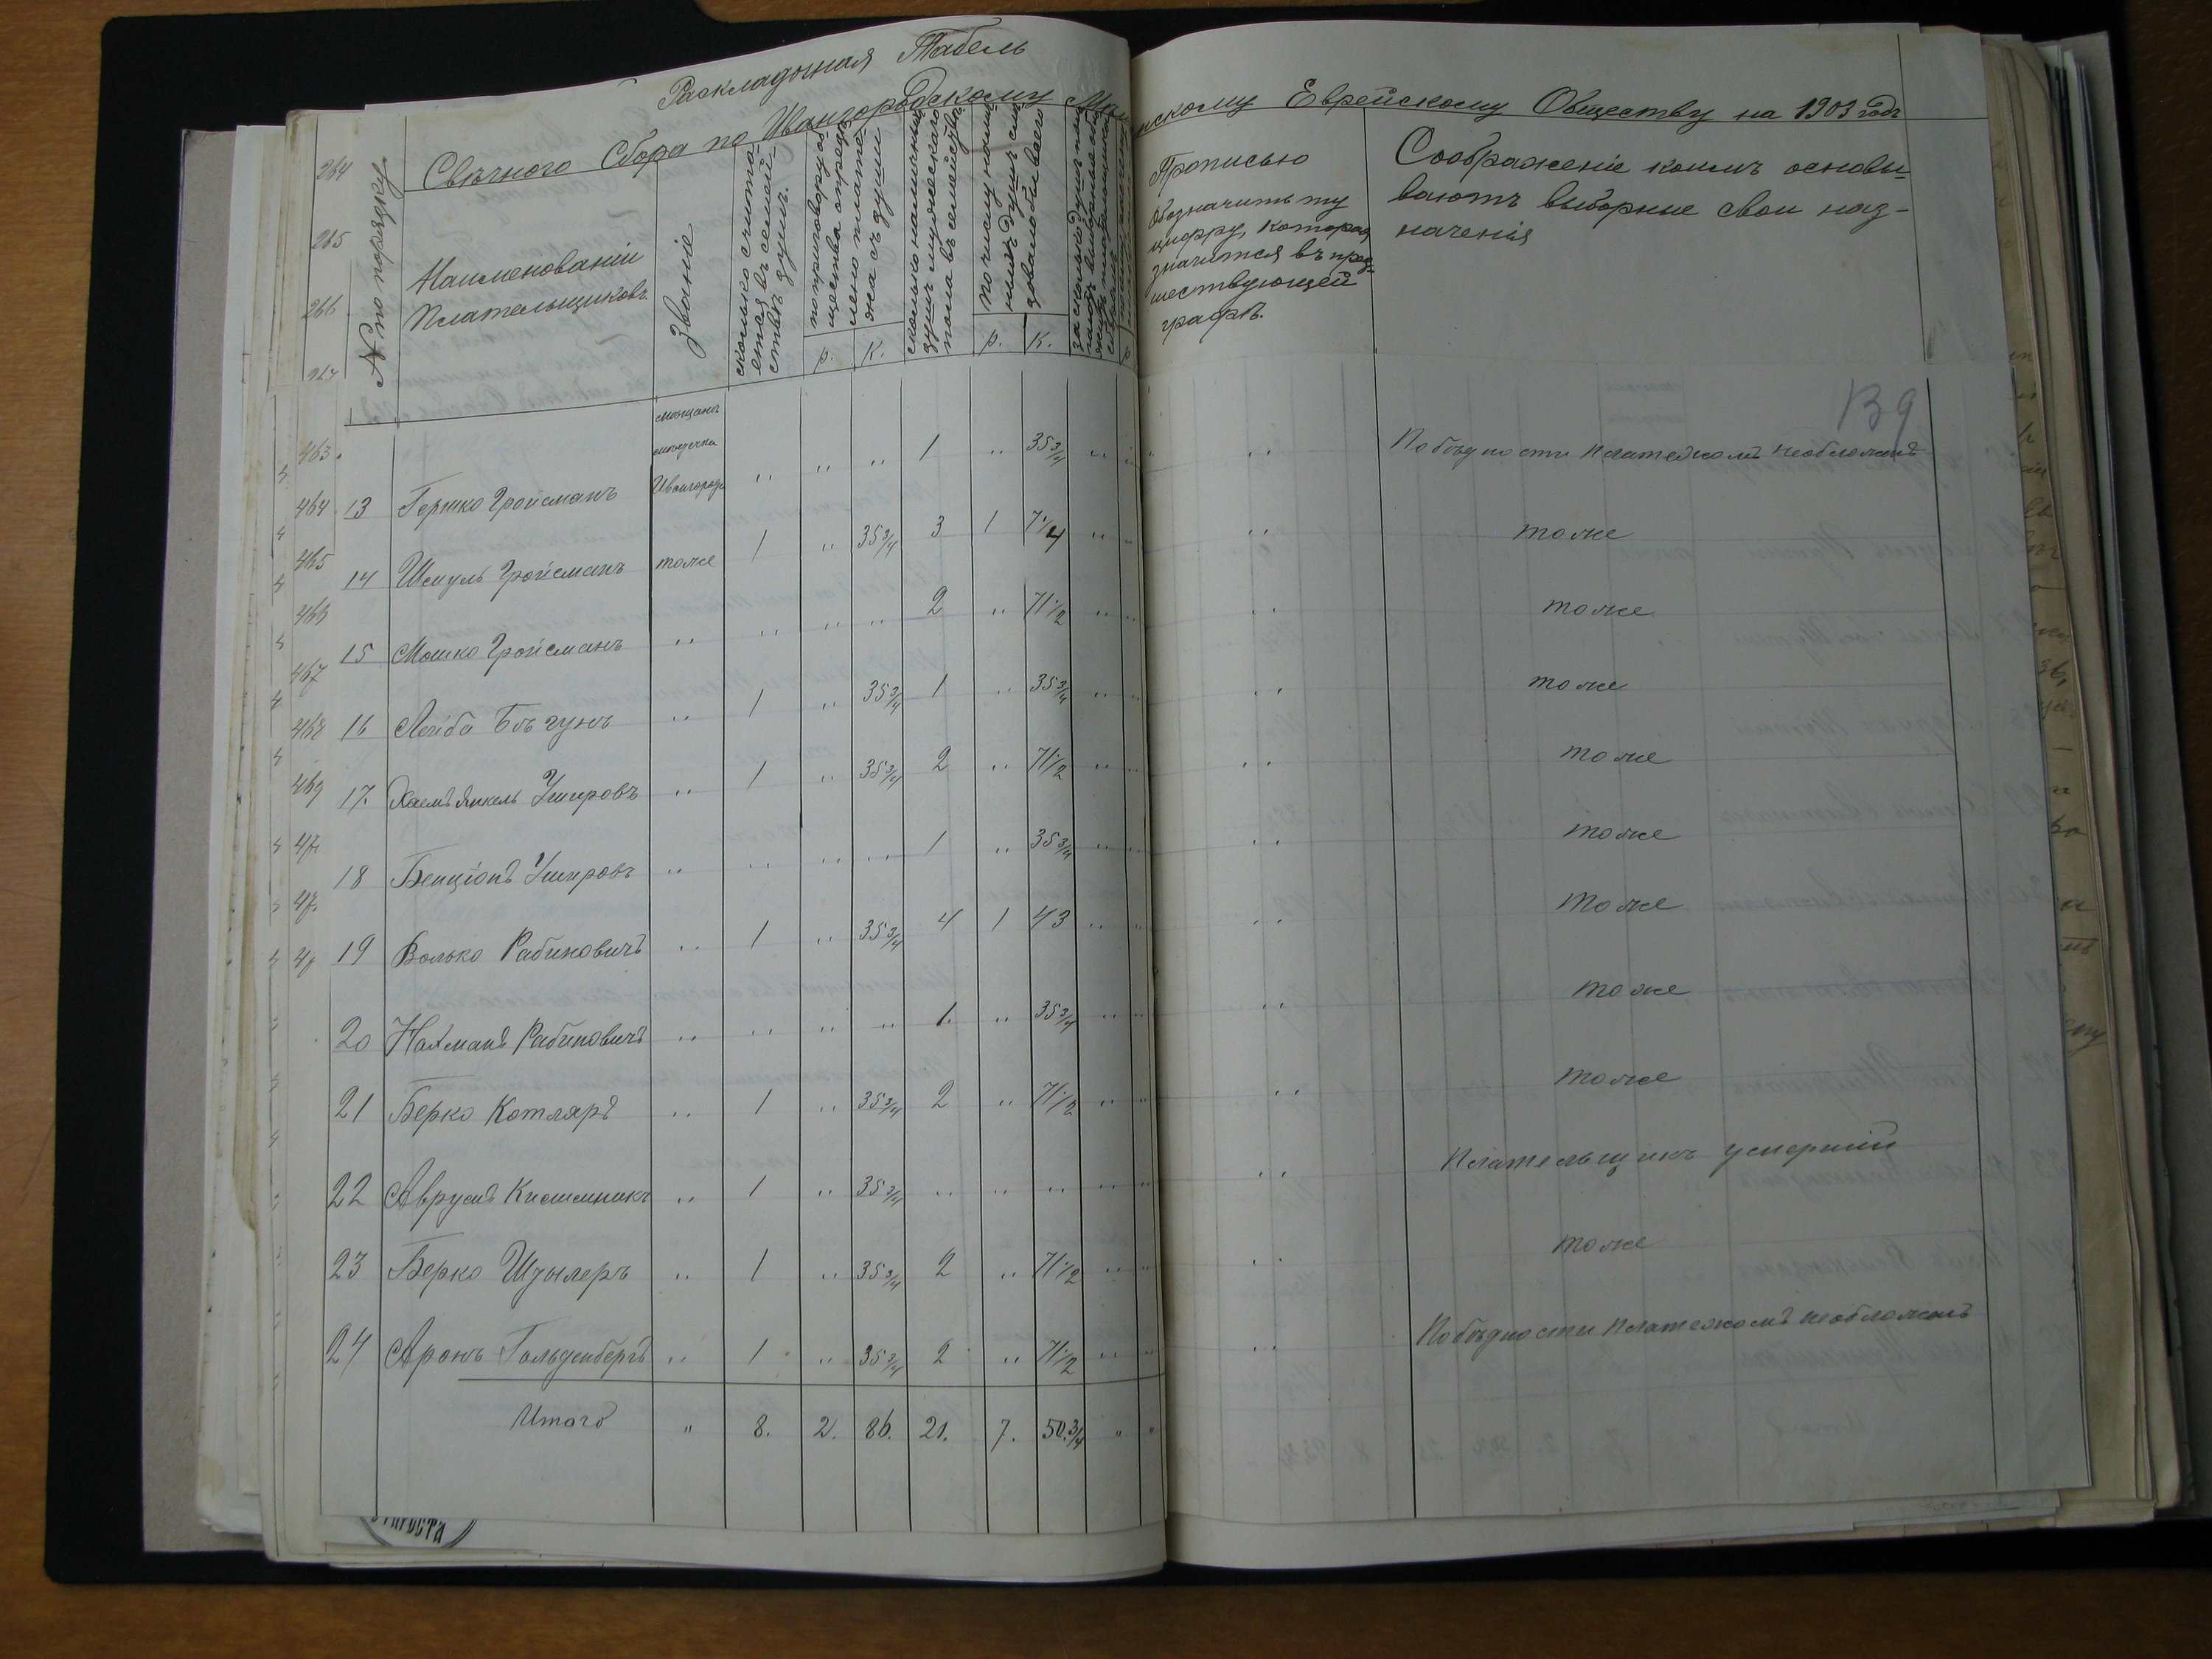 Раскладочная Табель
Свѣчного Сбора по Ивангородскому Мѣщанскому Еврейскому Обществу на 1903 годъ
№ по порядку
Наименованіи
Плательщиковъ
Званіе
сколько считается въ семействѣ душъ.
по приговору общества опредѣлено платежа съ души
р. к.
сколько наличныхъ душъ мужескаго пола въ семействѣ
по числу наличныхъ душъ слѣдовало бы всего
р. к.
Прописью
обозначить ту
цифру, которая
значится въ пред-
шествующей
графѣ.
Соображеніе коимъ основы-
ваютъ выборные свои наз-
наченія
139
264
265
266
267
463.
464
465
466
467
468
469
13 Гершко Гройсманъ Ивангорода " " " 1 " 35 3/4 " " По бѣдности платежомъ необложенъ
14 Шмуль Гройсманъ тоже 1 " 35 3/4 3 1 7 1/4 " " тоже
15 Мошко Гройсманъ " " " " 2 " 71 1/2 " " тоже
16 Лейба Бѣгунъ " 1 " 35 3/4 1 " 35 3/4 " " тоже
17. Хаемъ Янкель Умировъ " 1 " 35 3/4 2 " 71 1/2 " " тоже
18 Бенціонъ Умировъ " " " " 1 " 35 3/4 " " тоже
19 Волько Рабиновичъ " 1 " 35 3/4 4 1 43 " " тоже
20 Нахманъ Рабиновичъ " " " " 1. " 35 3/4 " " тоже
21 Берко Котляръ " 1 " 35 3/4 2 " 71 1/2 " " тоже
22 Аврумъ " 1 " 35 3/4 " " " " " Плательщикъ умерший
23 Берко " 1 " 35 3/4 2 " 71 1/2 " " тоже
24 Аронъ Гольденбергъ " 1 " 35 3/4 2 " 71 1/2 " " По бѣдности платежомъ необложенъ
Итого " 8. 2. 86. 21. 7. 50. 3/4 " "
СТАРОСТА